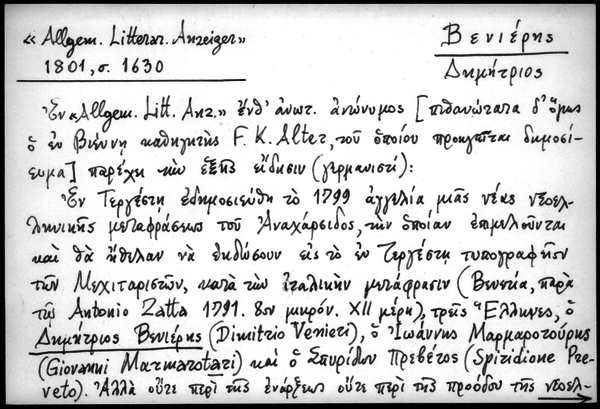 «Allgem. Litterar. Anzeiger»
1801, σ. 1630
Βενιέρης
Δημήτριος
Ἐν «Allgem. Litt. Anz.» ἔνθ' ἀνωτ. ἀνώνυμος [πιθανώτατα δ' ὅμως
ὁ ἐν Βιέννῃ καθηγητὴς F. K. Alter, τοῦ ὁποίου προηγεῖται δημοσί-
ευμα] παρέχει τὴν ἑξῆς εἴδησιν (γερμανιστί):
Ἐν Τεργέστῃ ἐδημοσιεύθη τὸ 1799 ἀγγελία μιᾶς νέας νεοελ-
ληνικῆς μεταφράσεως τοῦ Ἀναχάρσιδος, τὴν ὁποίαν ἐπιμελοῦνται
καὶ θὰ ἤθελαν νὰ ἐκδώσουν εἰς τὸ ἐν Τεργέστῃ τυπογραφεῖον
τῶν Μεχιταριστῶν, κατὰ τὴν ἰταλικὴν μετάφρασιν (Βενετία, παρὰ
τῷ Antonio Zatta 1791. 8ον μικρόν. XII μέρη), τρεῖς Ἕλληνες, ὁ
Δημήτριος Βενιέρης (Dimitrio Venieri), ὁ Ἰωάννης Μαρμαροτούρης
(Giovanni Marmarotari) καὶ ὁ Σπυρίδων Πρεβέτος (Spiridione Pre-
veto). Ἀλλὰ οὔτε περὶ τῆς ἐνάρξεως οὔτε περὶ τῆς προόδου τῆς νεοελ-